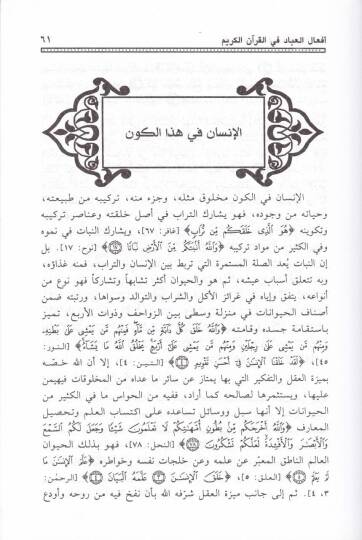 أفعال العباد في القرآن الكريم
٦١
الإنسان في هذا الكون
الإنسان في الكون مخلوق مثله، وجزء منه، تركيبه من طبيعته،
وحياته من وجوده، فهو يشارك التراب في أصل خلقته وعناصر تركيبه
وتكوينه ﴿هُوَ الَّذِي خَلَقَكُم مِّن تُرَابٍ﴾ [غافر: ٦٧]، ويشارك النبات في نموه
وفي الكثير من مواد تركيبه ﴿وَاللَّهُ أَنبَتَكُم مِّنَ الْأَرْضِ نَبَاتًا ١٧﴾ [نوح: ١٧]. بل
إن النبات يُعد الصلة المستمرة التي تربط بين الإنسان والتراب، فمنه غذاؤه،
وبه تتعلق أسباب عيشه، ثم هو والحيوان أكثر تشابهاً وتشاركاً فهو نوع من
أنواعه، يتفق وإياه في غرائز الأكل والشراب والتوالد وسواها، ورتبته ضمن
أصناف الحيوانات في منزلة وسطى بين الزواحف وذوات الأربع، تميز
باستقامة جسده وقامته ﴿وَاللَّهُ خَلَقَ كُلَّ دَابَّةٍ مِّن مَّاءٍ فَمِنْهُم مَّن يَمْشِي عَلَى بَطْنِهِ
وَمِنْهُم مَّن يَمْشِي عَلَى رِجْلَيْنِ وَمِنْهُم مَّن يَمْشِي عَلَى أَرْبَعٍ يَخْلُقُ اللَّهُ مَا يَشَاءُ﴾ [النور:
٤٥]، ﴿لَقَدْ خَلَقْنَا الْإِنسَانَ فِي أَحْسَنِ تَقْوِيمٍ ٤﴾ [التين: ٤]، إلا أن الله خصّه
بميزة العقل والتفكير التي بها يمتاز عن سائر ما عداه من المخلوقات فيهيمن
عليها، ويستثمرها لصالحه كما أراد، ففيه من الحواس ما في الكثير من
الحيوانات إلا أنها سبل ووسائل تساعده على اكتساب العلم وتحصيل
المعارف ﴿وَاللَّهُ أَخْرَجَكُم مِّن بُطُونِ أُمَّهَاتِكُمْ لَا تَعْلَمُونَ شَيْئًا وَجَعَلَ لَكُمُ السَّمْعَ
وَالْأَبْصَارَ وَالْأَفْئِدَةَ لَعَلَّكُمْ تَشْكُرُونَ ٧٨﴾ [النحل: ٧٨]، فهو بذلك الحيوان
العالم الناطق المعبّر عن علمه وعن خلجات نفسه وخواطره ﴿عَلَّمَ الْإِنسَانَ مَا
لَمْ يَعْلَمْ ٥﴾ [العلق: ٥]، ﴿خَلَقَ الْإِنسَانَ ٣ عَلَّمَهُ الْبَيَانَ ٤﴾ [الرحمن:
٣، ٤]. ثم إلى جانب ميزة العقل شرّفه الله بأن نفخ فيه من روحه وأودع